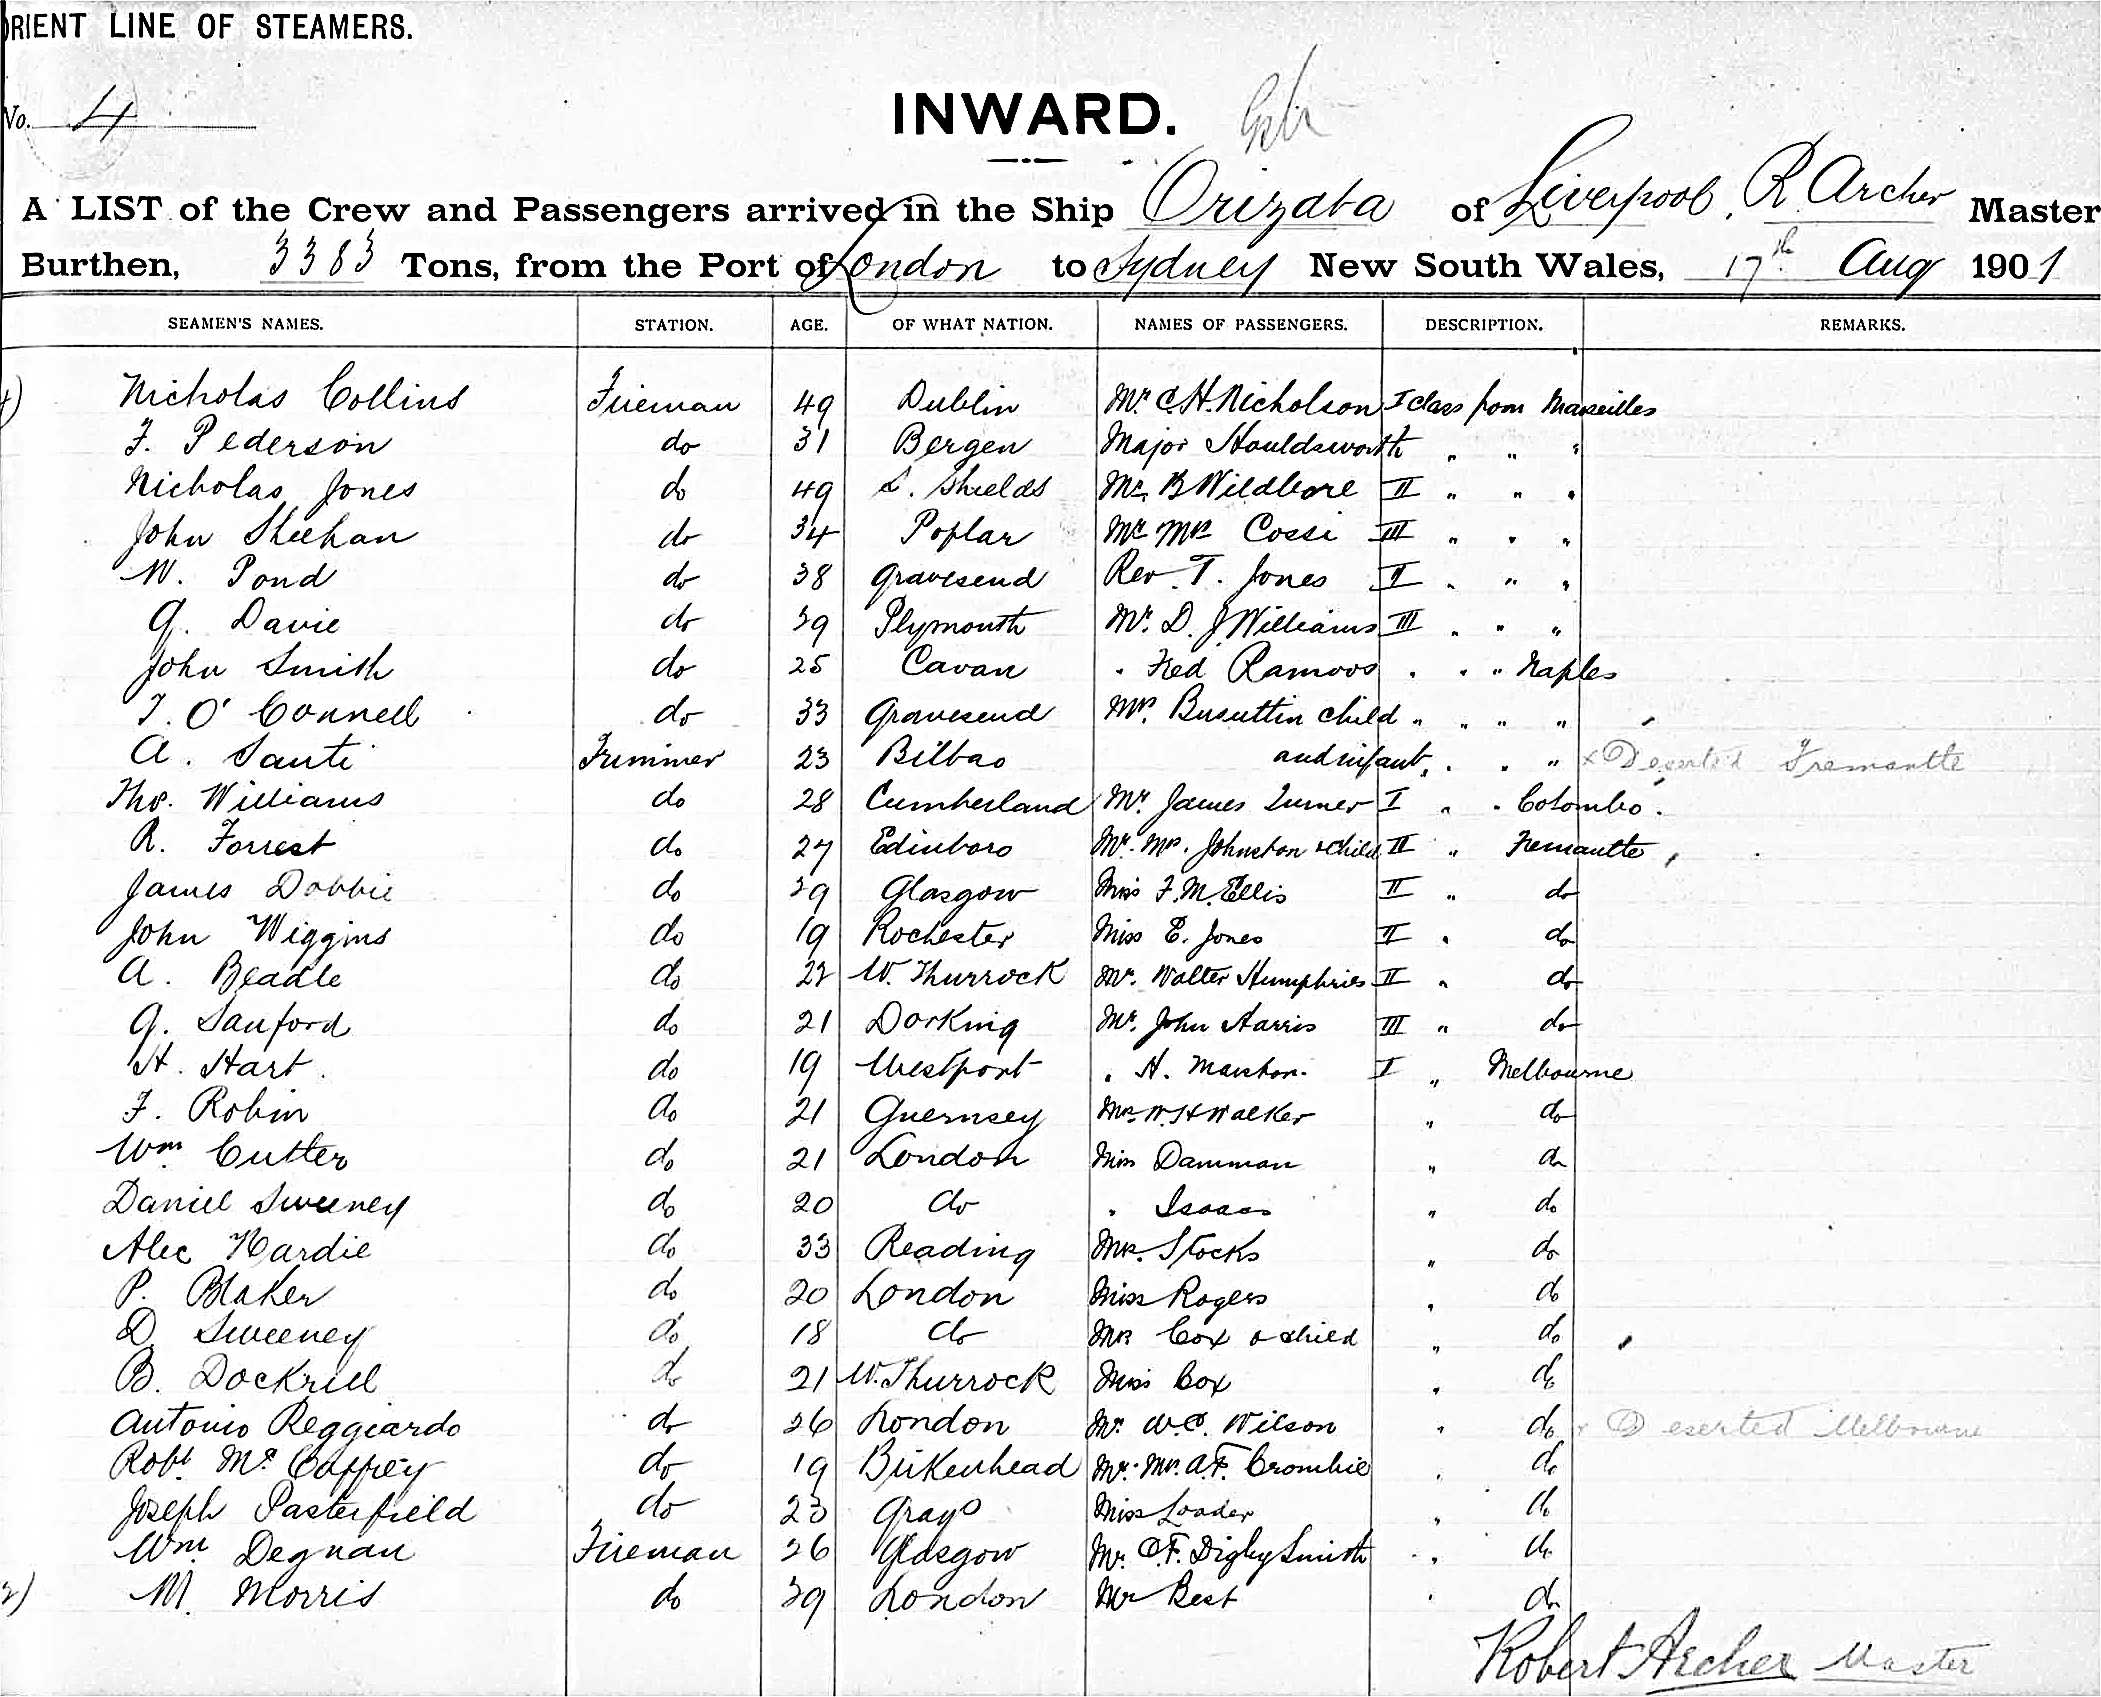 ORIENT LINE OF STEAMERS.
No. 4
INWARD.
A LIST of the Crew and Passengers arrived in the Ship Orizaba of Liverpool, R Archer Master
Burthen, 3383 Tons, from the Port of London to Sydney New South Wales, 17th Aug 1901
SEAMEN'S NAMES. STATION. AGE. OF WHAT NATION. NAMES OF PASSENGERS. DESCRIPTION. REMARKS.
Nicholas Collins Fireman 49 Dublin Mr. C H. Nicholson I class from Marseilles
F. Pederson do 31 Bergen Major Houldsworth " " "
Nicholas Jones do 49 S. Shields Mr. B Wildbore II " " "
John Sheehan do 34 Poplar Mr Mrs Cossi III " " "
W. Pond do 38 Gravesend Rev. T. Jones II " " "
G. Davie do 39 Plymouth Mr. D. J. Williams III " " "
John Smith do 25 Cavan " Fred Ramoos " " " Naples
T. O'Connell do 33 Gravesend Mrs. Busuttin child " " " "
A. Santi Trimmer 23 Bilbao and infant, " " " x Deserted Fremantle
Thos. Williams do 28 Cumberland Mr. James Turner I " " Colombo.
R. Forrest do 27 Edinboro Mr. Mrs. Johnston & child II " Fremantle
James Dobbie do 39 Glasgow Miss F. M. Ellis II " do
John Wiggins do 19 Rochester Miss E. Jones II " do
A. Beadle do 22 W. Thurrock Mr. Walter Humphries II " do
G. Sanford do 21 Dorking Mr. John Harris III " do
H. Hart. do 19 Westport " H. Marston. I " Melbourne
F. Robin do 21 Guernsey Mrs. W. H Walker " do
Wm. Cutter do 21 London Miss Damman " do
Daniel Sweeney do 20 do " Isaacs " do
Alec Hardie do 33 Reading Mrs. Stocks " do
P. Blaker do 20 London Miss Rogers " do
D. Sweeney do 18 do Mrs Cox & child " do
B. Dockrill do 21 W. Thurrock Miss Cox " do
Antonio Reggiardo do 26 London Mr. W. C. Wilson " do x Deserted Melbourne
Robt. McCaffrey do 19 Birkenhead Mr. Mrs. A. F. Crombie " do
Joseph Pasterfield do 23 Grays Miss Loader " do
Wm. Degnan Fireman 26 Glasgow Mr. C. F. Digby Smith " do
M. Morris do 39 London Mr Best " do
Robert Archer Master